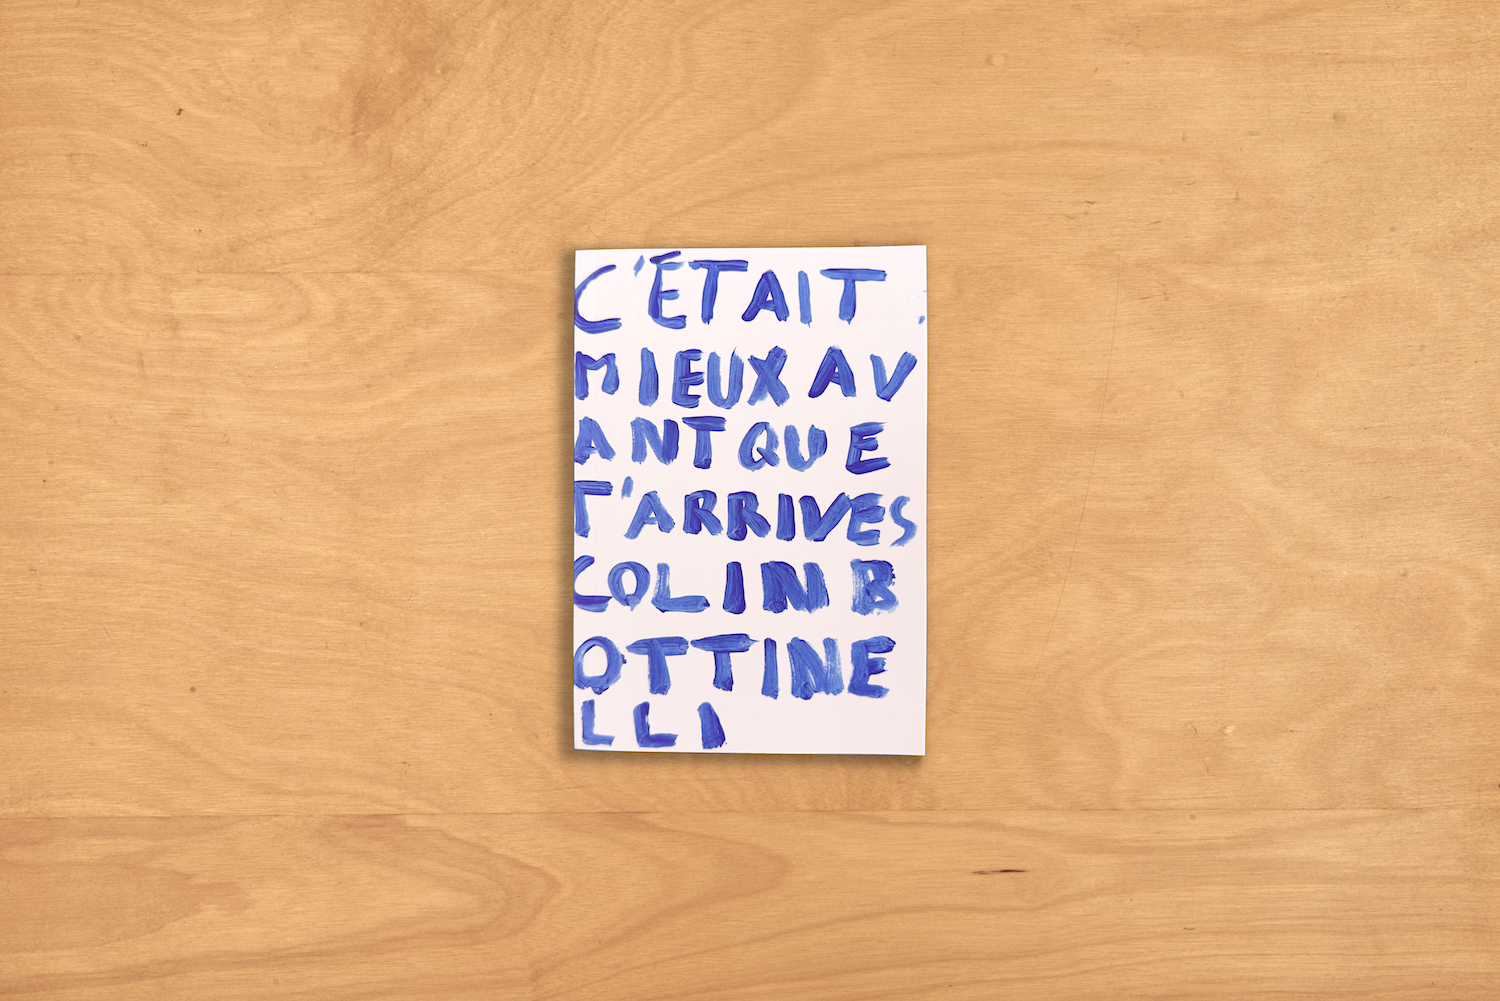 C'ÉTAIT
MIEUX AV
ANT QUE
T'ARRIVES
COLIN B
OTTINE
LLI